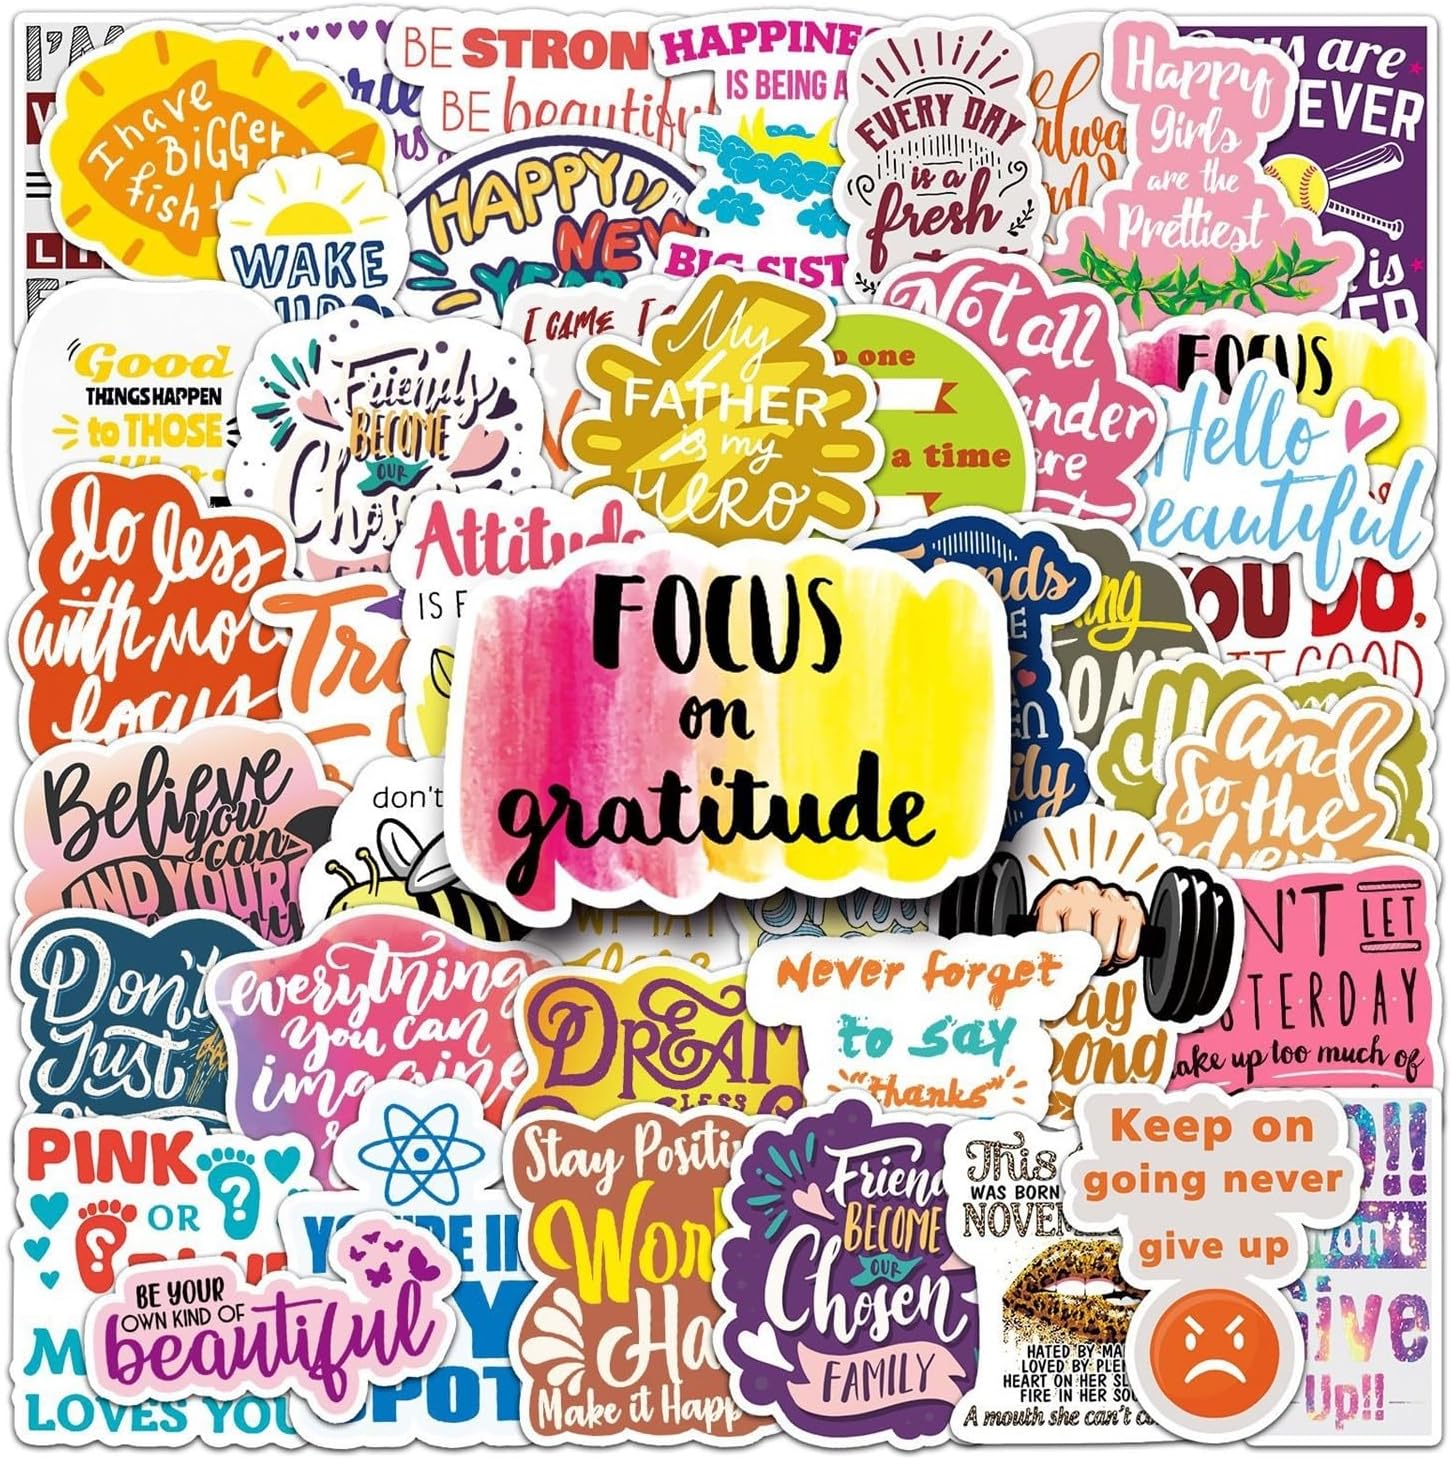 I'M
I have
BiGGer
fish
WAKE
BE STRON
BE beautifu
HAPPY
NEW
YEAR
HAPPINE
IS BEING A
BIG SIST
EVERY DAY
is a
fresh
alwa
Happy
Girls
are the
Prettiest
are
EVER
is
"Good
THINGS HAPPEN
to THOSE
Friends
BECOME
OUR
Chos
I CAME I
My
FATHER
is my
HERO
one
a time
Not all
ander
are
FOCUS
Hello
eautiful
do less
with mo
focus
Tr
Attitude
IS
FOCUS
on
gratitude
nds
ily
ng
OM
OU DO,
IT GOOD
and
so the
Believe
you
can
AND YOUR
don't
Don't
Just
everything
you can
imagine
DREAM
LESS
Never forget
to say
"thanks"
ay
ong
N'T LET
STERDAY
ake up too much of
PINK
OR
LOVES YOU
BE YOUR
OWN KIND OF
beautiful
YOU'RE IN
Y
POT
Stay Positi
Wor
Ha
Make it Happ
Friend
BECOME
OUR
Chosen
FAMILY
This
WAS BORN
NOVEM
HATED BY MA
LOVED BY PLEN
HEART ON HER SL
FIRE IN HER SOU
A mouth she can't c
Keep on
going never
give up
!!
on't
ive
Up!!